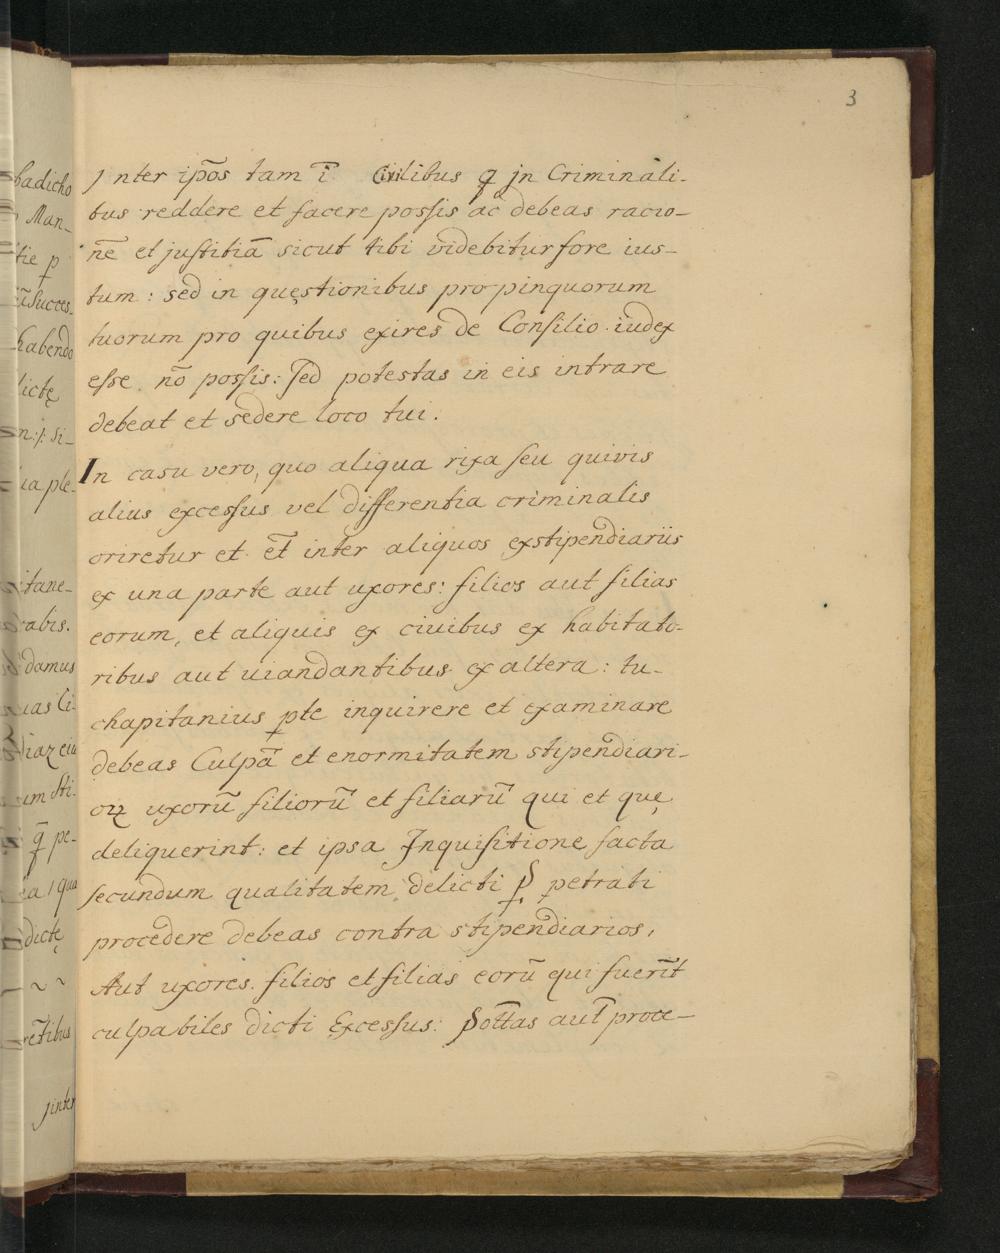 3
Jnter ip̃os tam ĩ Ciuilibus q̃ jn Criminali-
bus reddere et facere poſsis ac debeas racio-
nẽ et juſtitiã sicut tibi videbitur fore ius-
tum : sed in quęstionibus propinquorum
tuorum pro quibus exires de Conſilio . iudex
eſse nõ poſsis : ſed potestas in eis intrare
debeat et sedere loco tui .
In casu vero, quo aliqua rixa ſeu quivis
alius exceſsus vel differentia criminalis
oriretur et et̃ inter aliquos exstipendiariis
ex una parte aut uxores : filios aut filias
eorum, et aliquis ex ciuibus ex habitato-
ribus aut uiandantibus ex altera : tu-
chapitanius ꝑte inquirere et examinare
debeas Culpã et enormitatem stipendiari-
oꝝ uxorũ filiorũ et filiarũ qui et quę
deliquerint : et ipsa Jnquiſitione facta
secundum qualitatem delicti ꝑpetrati
procedere debeas contra stipendiarios,
Aut uxores . filios et filias eorũ qui fuerĩt
culpabiles dicti Exceſsus : Pott̃as aut̃ proce-
badicho
Man-
tie ꝑ
Succes-
habendo
dictę
si-
ia ple-
itane-
rabis.
damus
uas Ci-
um Sti-
q̃ pe-
ea / qua
dictę
~ ~
Jinter